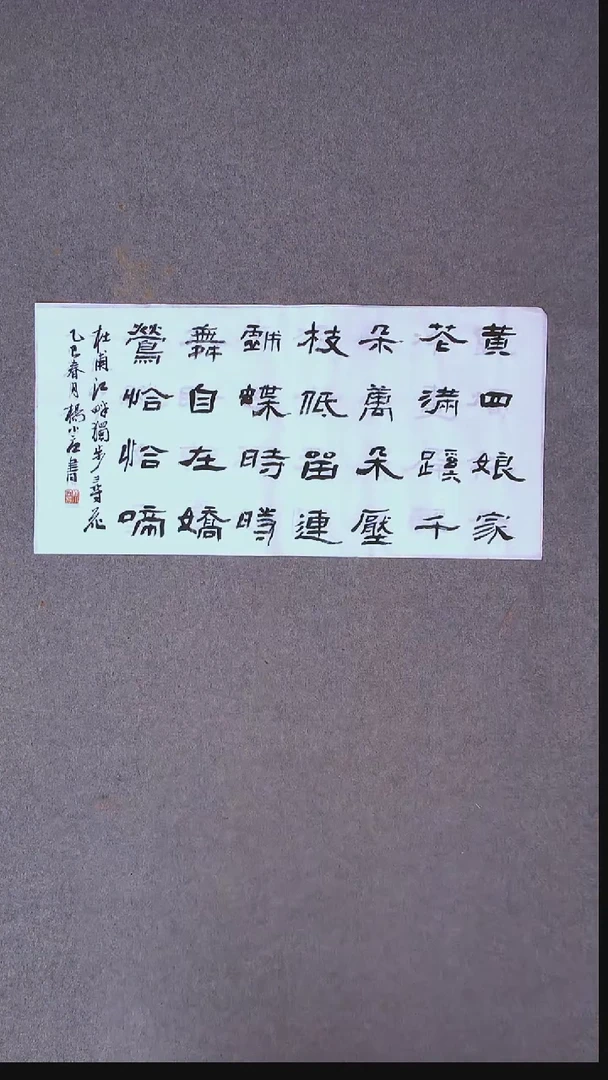 黃四娘家
花滿蹊千
朵萬朵壓
枝低留連
戲蝶時時
舞自在嬌
鶯恰恰啼
杜甫江畔獨步尋花
乙巳春月楊小書